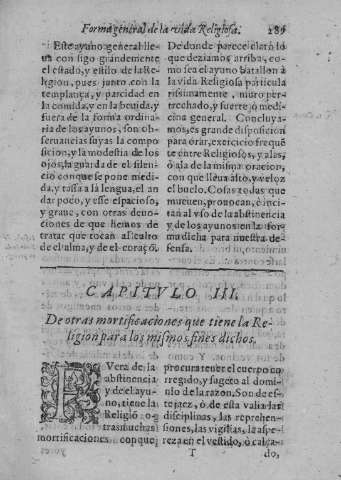 Forma general de la vida Religiosa. 289
Este ayuno general lle-
ua con sigo grandemente
el estado, y estilo de la Re-
ligion, pues junto con la
templança, y parcidad en
la comida, y en la beuida, y
fuera de la forma ordina-
ria de los ayunos, son ob-
seruancias suyas la compo-
sicion, y la modestia de los
ojos, la guarda de el silen-
cio conque se pone medi-
da, y tassa a la lengua, el an
dar poco, y esse espacioso,
y graue, con otras deuo-
ciones de que hemos de
tratar que tocan al culto
de el alma, y de el coraçõ.
De donde parece claro lo
que deziamos arriba, co-
mo sea el ayuno batallon à
la vida Religiosa particula
rissimamente, muro per-
trechado, y fuerte, ó medi-
cina general. Concluya-
mos, es grande disposicion
para orar, exercicio freque
te entre Religiosos, y alas,
ò aja de la misma oracion,
con que lleua alto, y veloz
el buelo. Cosas todas que
mueuen, prouocan, è inci-
tan al vso de la abstinencia
y de los ayunos en la for
ma dicha para nuestra de-
fensa.
CAPITVLO III.
De otras mortificaciones que tiene la Re-
ligion para los mismos fines dichos.
FVera de la
abstinencia
y de el ayu-
no, tiene la
Religiõ o-
tras muchas
mortificaciones con que
procura tener el cuerpo co
rregido, y sugeto al domi-
nio de la razon. Son de es-
te jaez, ò de esta valia las
disciplinas, las reprehen-
siones, las vigilias, la aspe-
reza en el vestido, ò calça-
T do,